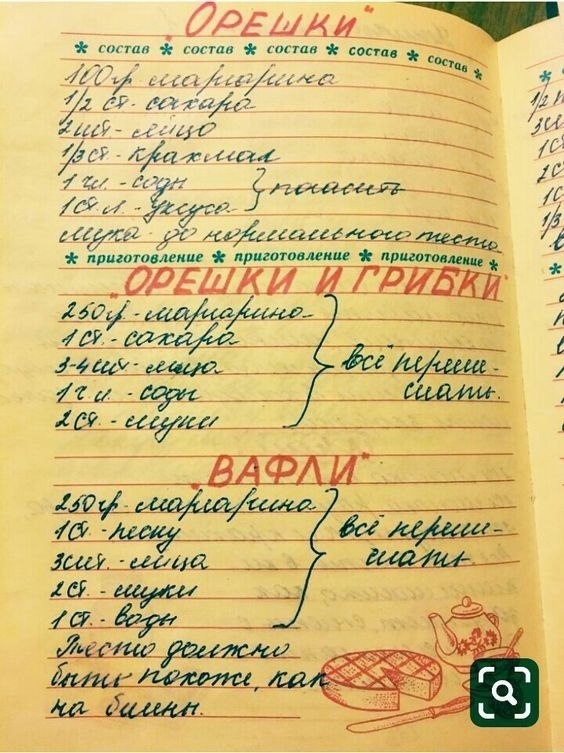 "ОРЕШКИ"
* состав * состав * состав * состав * состав *
100гр. маргарина
1/2 ст. сахара
2шт. яйцо
1/3ст. крахмал
1 ч.л. - соды } погасить
1ст.л. - уксуса
мука - до нормального теста
* приготовление * приготовление * приготовление *
"ОРЕШКИ И ГРИБКИ"
250гр. - маргарина
1ст. - сахара
3-4шт. яйца
1 ч.л. - соды
2ст. - муки
} всё переме-
шать.
"ВАФЛИ"
250гр - маргарина
1ст. - песку
3шт. - яйца
2ст. - муки
1ст. - воды
} всё переме-
шать
Тесто должно
быть похоже, как
на блины.